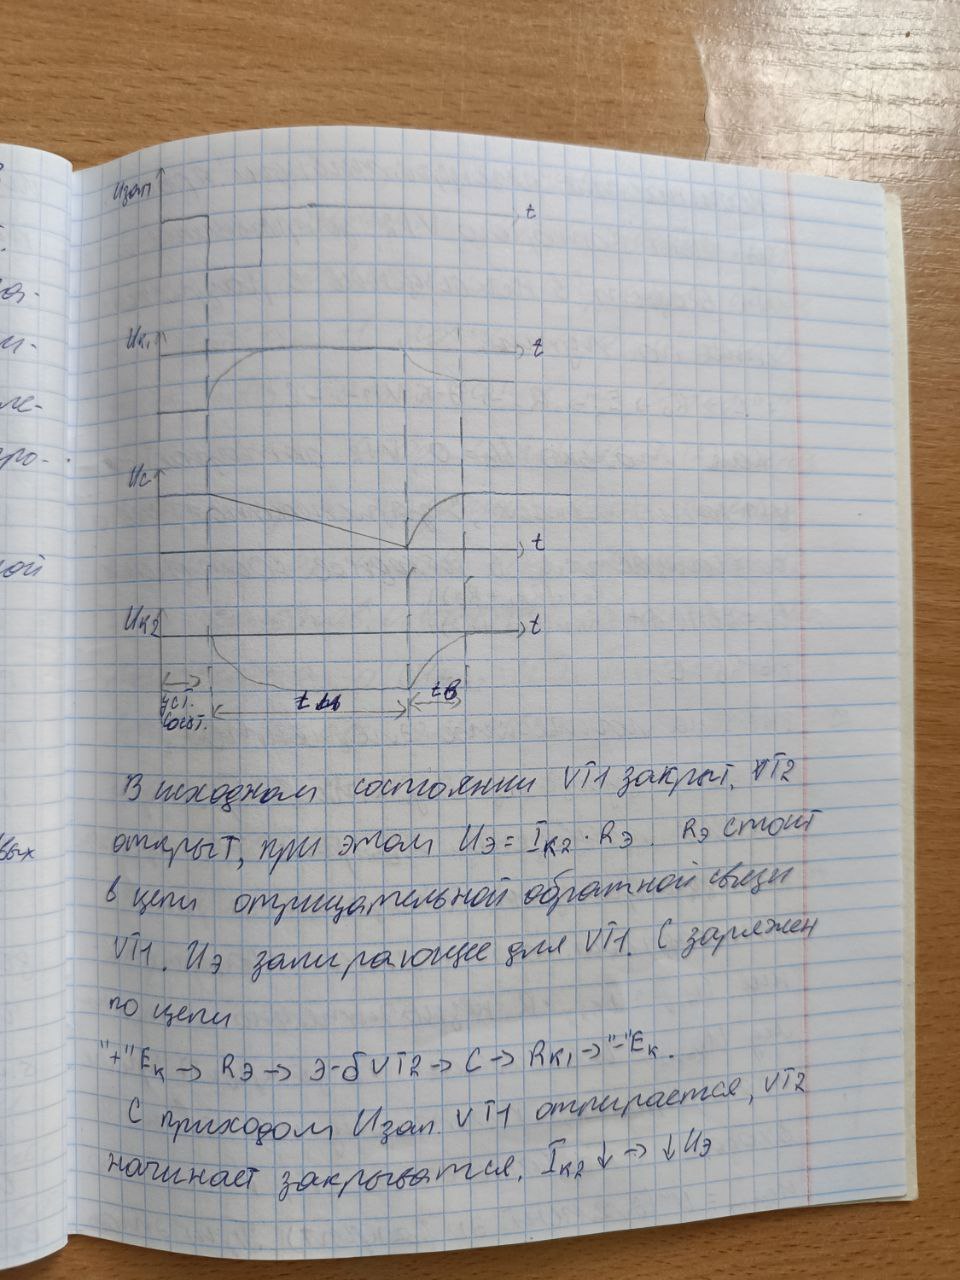 Uзап
t
Uк1
t
Uс
t
Uк2
t
уст.
сост.
t
tв
В исходном состоянии VT1 закрыт, VT2
открыт, при этом Uэ = Iк2 · Rэ. Rэ стоит
в цепи отрицательной обратной связи
VT1. Uэ запирающее для VT1. С заряжен
по цепи
"+"Eк → Rэ → Э-б VT2 → C → Rк1 → "-"Eк.
С приходом Uзап. VT1 отпирается, VT2
начинает закрыватся, Iк2 ↓ → ↓ Uэ
вых
ной